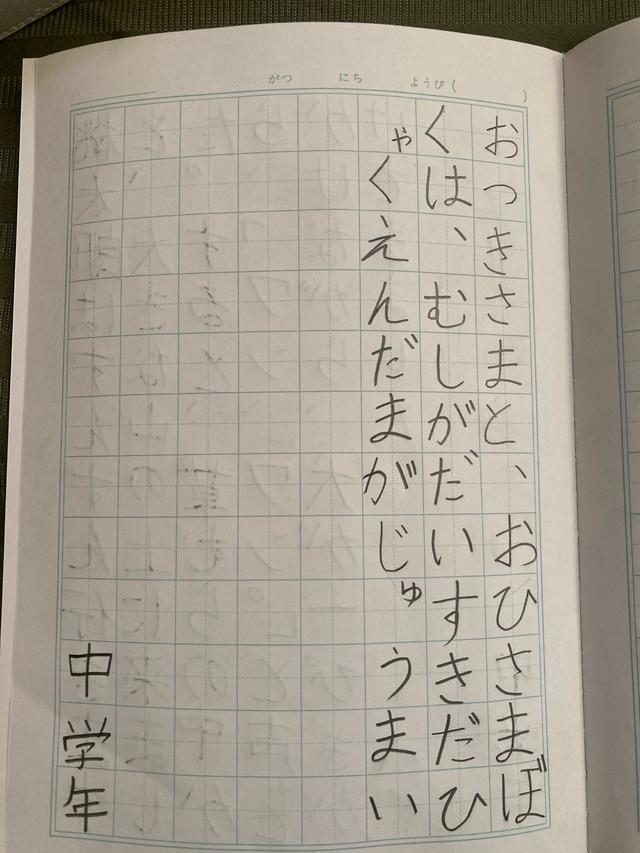 がつ にち ようび( )
おっきさまと、おひさまぼ
くは、むしがだいすきだひ
ゃくえんだまがじゅうまい
中学年